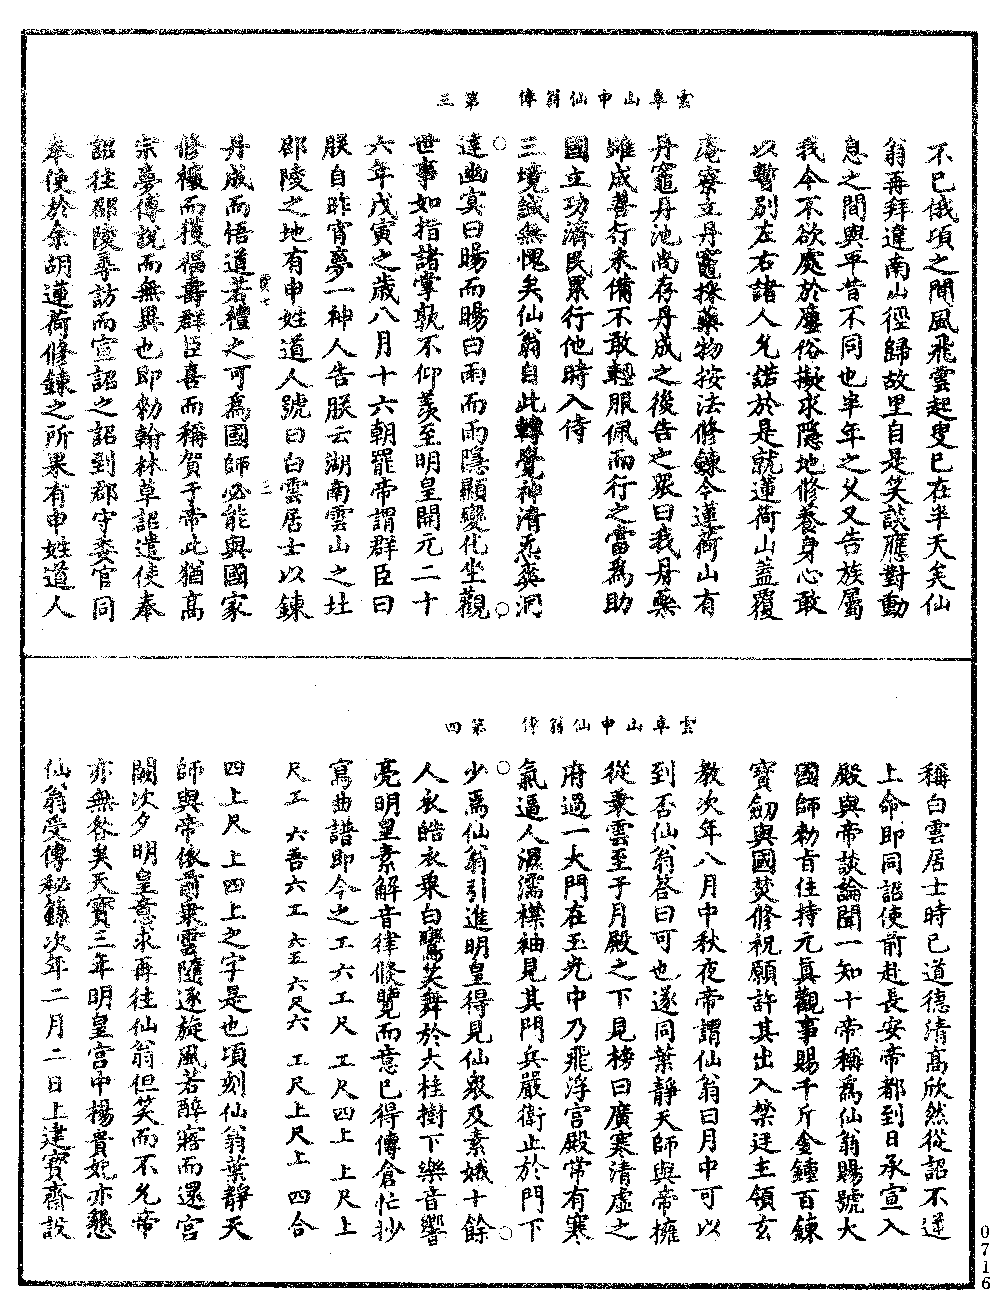 雲阜山申仙翁傳　第三
不已俄頃之間風飛雲起叟已在半天矣仙
翁再拜違南山徑歸故里自是笑談應對動
息之間與平昔不同也半年之父又告族屬
我今不欲處於塵俗擬求隱地修養身心敢
以暫別左右諸人允諾於是就蓮荷山蓋覆
庵寮立丹竈採藥物按法修鍊今蓮荷山有
丹竈丹池尚存丹成之後告之眾曰我丹藥
雖成善行未備不敢輕服佩而行之當為助
國立功濟民累行他時入侍
三境誠無愧矣仙翁自此轉覺神清炁爽洞
達幽冥曰暘而暘曰雨而雨隱顯變化坐觀
世事如指諸掌孰不仰羨至明皇開元二十
六年戊寅之歲八月十六朝罷帝謂群臣曰
朕自昨宵夢一神人告朕云湖南雲山之址
郡陵之地有申姓道人號曰白雲居士以鍊
丹成而悟道若禮之可為國師必能與國家
修禳而獲福壽群臣喜而稱賀予帝此猶高
宗夢傳說而無異也即勑翰林草詔遣使奉
詔往邵陵尋訪而宣詔之詔到郡守委官同
奉使於余胡蓮荷修鍊之所果有申姓道人
雲阜山申仙翁傳　第四
稱白雲居士時已道德清高欣然從詔不逆
上命即同詔使前赴長安帝都到日承宣入
殿與帝談論聞一知十帝稱為仙翁賜號大
國師勑旨住持元真觀事賜千斤金鍾百鍊
寶劒與國焚修祝願許其出入禁廷主領玄
教次年八月中秋夜帝謂仙翁曰月中可以
到否仙翁答曰可也遂同葉靜天師與帝擁
從乘雲至于月殿之下見榜曰廣寒清虛之
府過一大門在玉光中乃飛浮宮殿常有寒
氣逼人濕濡襟袖見其門兵嚴衛止於門下
少焉仙翁引進明皇得見仙眾及素娥十餘
人衣皓衣乘白鸞笑舞於大桂樹下樂音響
亮明皇素解音律倏覽而意已得傳倉忙抄
寫曲譜即今之工六工尺　工尺四上　上尺上
尺工　六吾六工　六五六尺六　工尺上尺上　四合
四上尺　上四上之字是也頃刻仙翁葉靜天
師與帝依前乘雲隨逐旋風若醉寤而還宮
闕次夕明皇意求再往仙翁但笑而不允帝
亦無咎矣天寶三年明皇宮中楊貴妃亦懇
仙翁受傳秘籙次年二月二日上建寶齋設
0716